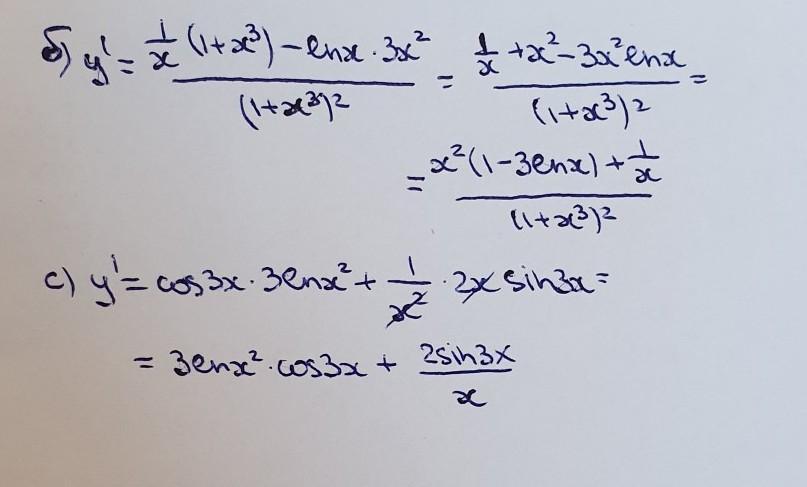 б) y' = (1/x (1+x³) - lnx · 3x²)/(1+x³)² = (1/x + x² - 3x²lnx)/(1+x³)² =
= (x²(1-3lnx) + 1/x)/(1+x³)²
c) y' = cos3x · 3lnx² + 1/x² · 2x sin3x =
= 3lnx² · cos3x + 2sin3x/x